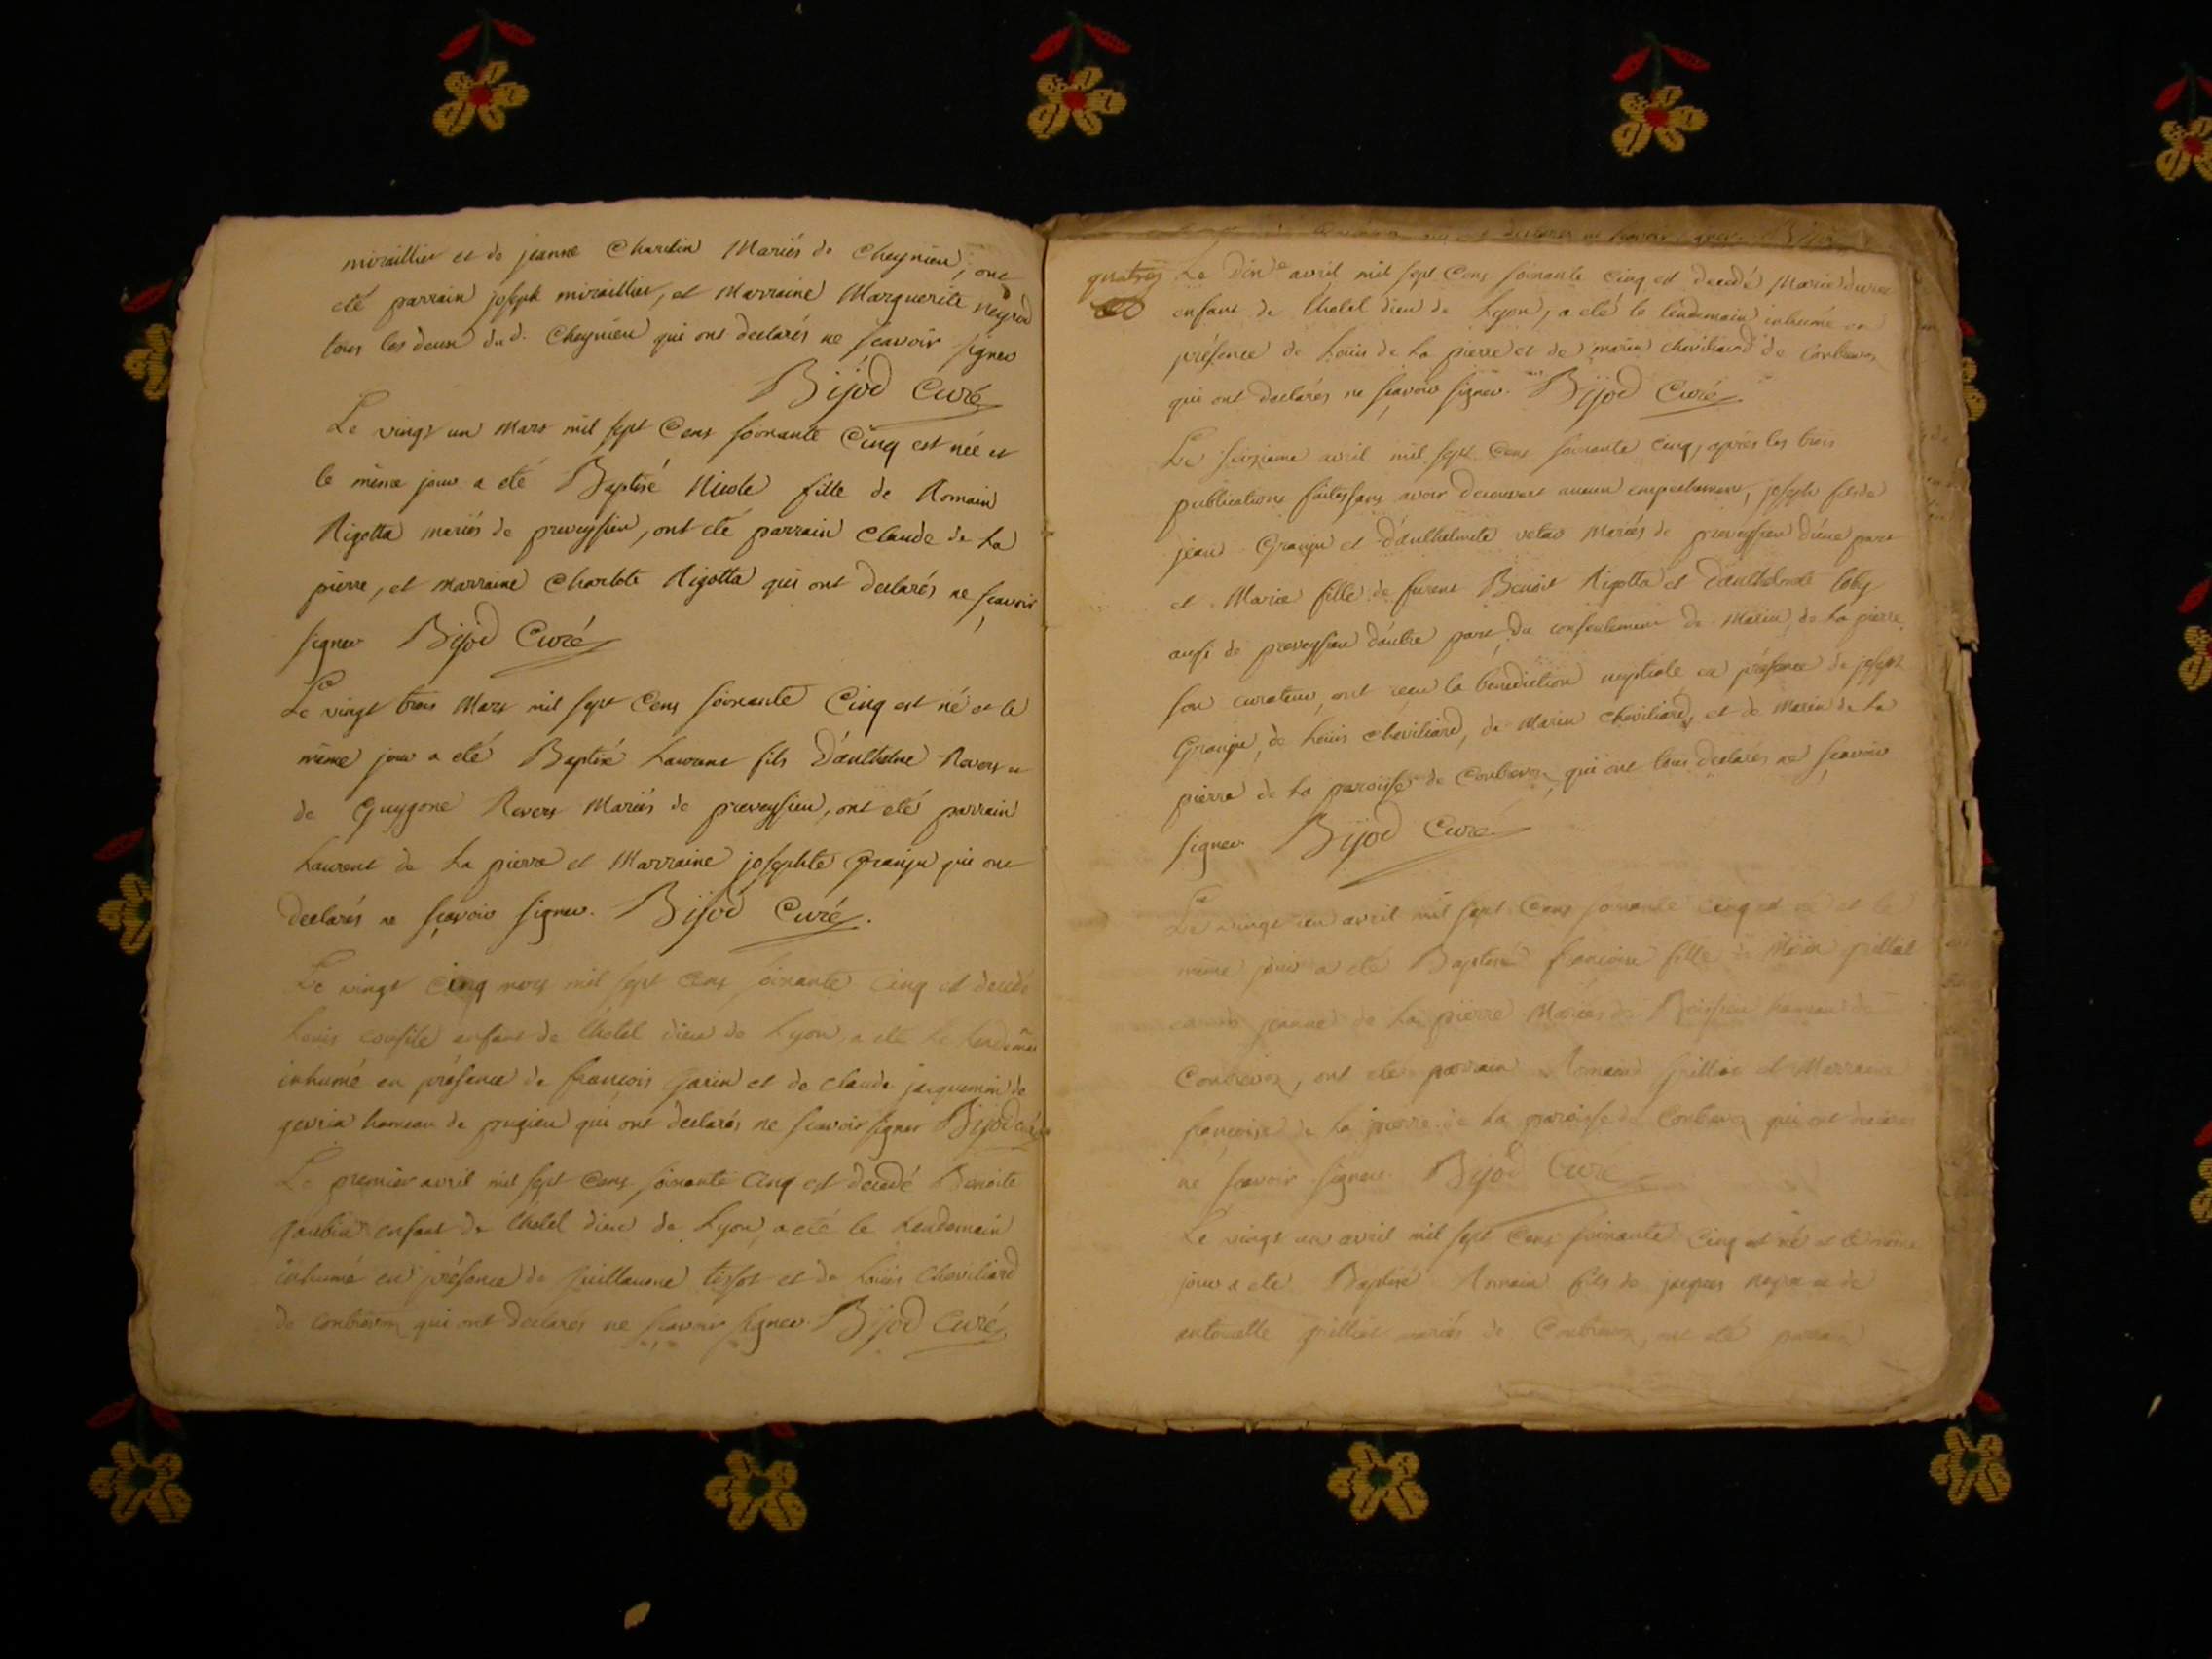 miraillier et de jeanne Chardin Mariés de cheynieu, ont
eté parrain joseph miraillier, et Marraine Marguerite neyrod
tous les deux dud. Cheynieu qui ont declarés ne scavoir signer
Bijod Curé
Le vingt un Mars mil sept Cens soixante Cinq est née et
le même jour a eté Baptisé Nicole fille de Romain
Rigotta mariés de preveyssieu, ont eté parrain Claude de La
pierre, et marraine Charlote Rigotta qui ont declarés ne scavoir
signer Bijod Curé
Le vingt trois Mars mil sept Cens soixante Cinq est né et le
même jour a eté Baptisé Laurent fils D'anthelme Revers et
de Guygone Revers Mariés de preveyssieu, ont eté parrain
Laurent de La pierre et Marraine josephte Granju qui ont
declarés ne scavoir signer. Bijod Curé.
Le vingt Cinq mars mil sept Cens soixante Cinq est decedé
Louis enfant de l'hotel dieu de Lyon, a eté le
inhumé en présence de françois Garin et de claude jacquemin de
gevrin hameau de pugieu qui ont declarés ne scavoir signer Bijod Curé
Le premier avril mil sept Cens soixante Cinq est decedé Benoite
enfant de l'hotel dieu de Lyon, a eté le Lendemain
inhumé en présence de Guillaume tissot et de Loüis Cheviliard
de conbrevoz qui ont declarés ne scavoir signer. Bijod Curé
Le avril mil sept Cens soixante Cinq est decedé Marie
enfant de l'hotel dieu de Lyon, a eté le lendemain inhumé en
présence de Loüis de La pierre et de marin cheviliard de
qui ont declarés ne scavoir signer. Bijod Curé
Le seizieme avril mil sept Cens soixante Cinq, après les trois
publications faites sans avoir decouvert aucun empechement, joseph fils de
jean Granju et D'anthelmete mariés de preveyssieu d'une part
et Marie fille de furent Benoit Rigotta et D'anthelmete
aussi de preveyssieu d'autre part, Du consentement de Marin de La pierre
son curateur, ont recu la bénediction nuptiale en présence de joseph
Granju, de Loüis Cheviliard, de Marin Cheviliard, et de Marin de La
pierre de La paroisse de Conbrevoz qui ont tous declarés ne scavoir
signer Bijod Curé
Le vingt un avril mil sept Cens soixante Cinq est né et le
même jour a eté Baptisé francoise fille de
jeanne de La pierre Mariés de hameau de
Conbrevoz, ont eté parrain Romain et Marraine
francoise de La pierre de La paroisse de Conbrevoz qui ont declarés
ne scavoir signer. Bijod Curé
Le vingt un avril mil sept Cens soixante Cinq est né et le même
jour a eté Baptisé Romain fils de jacques et de
antoinette mariés de Conbrevoz, ont eté parrain